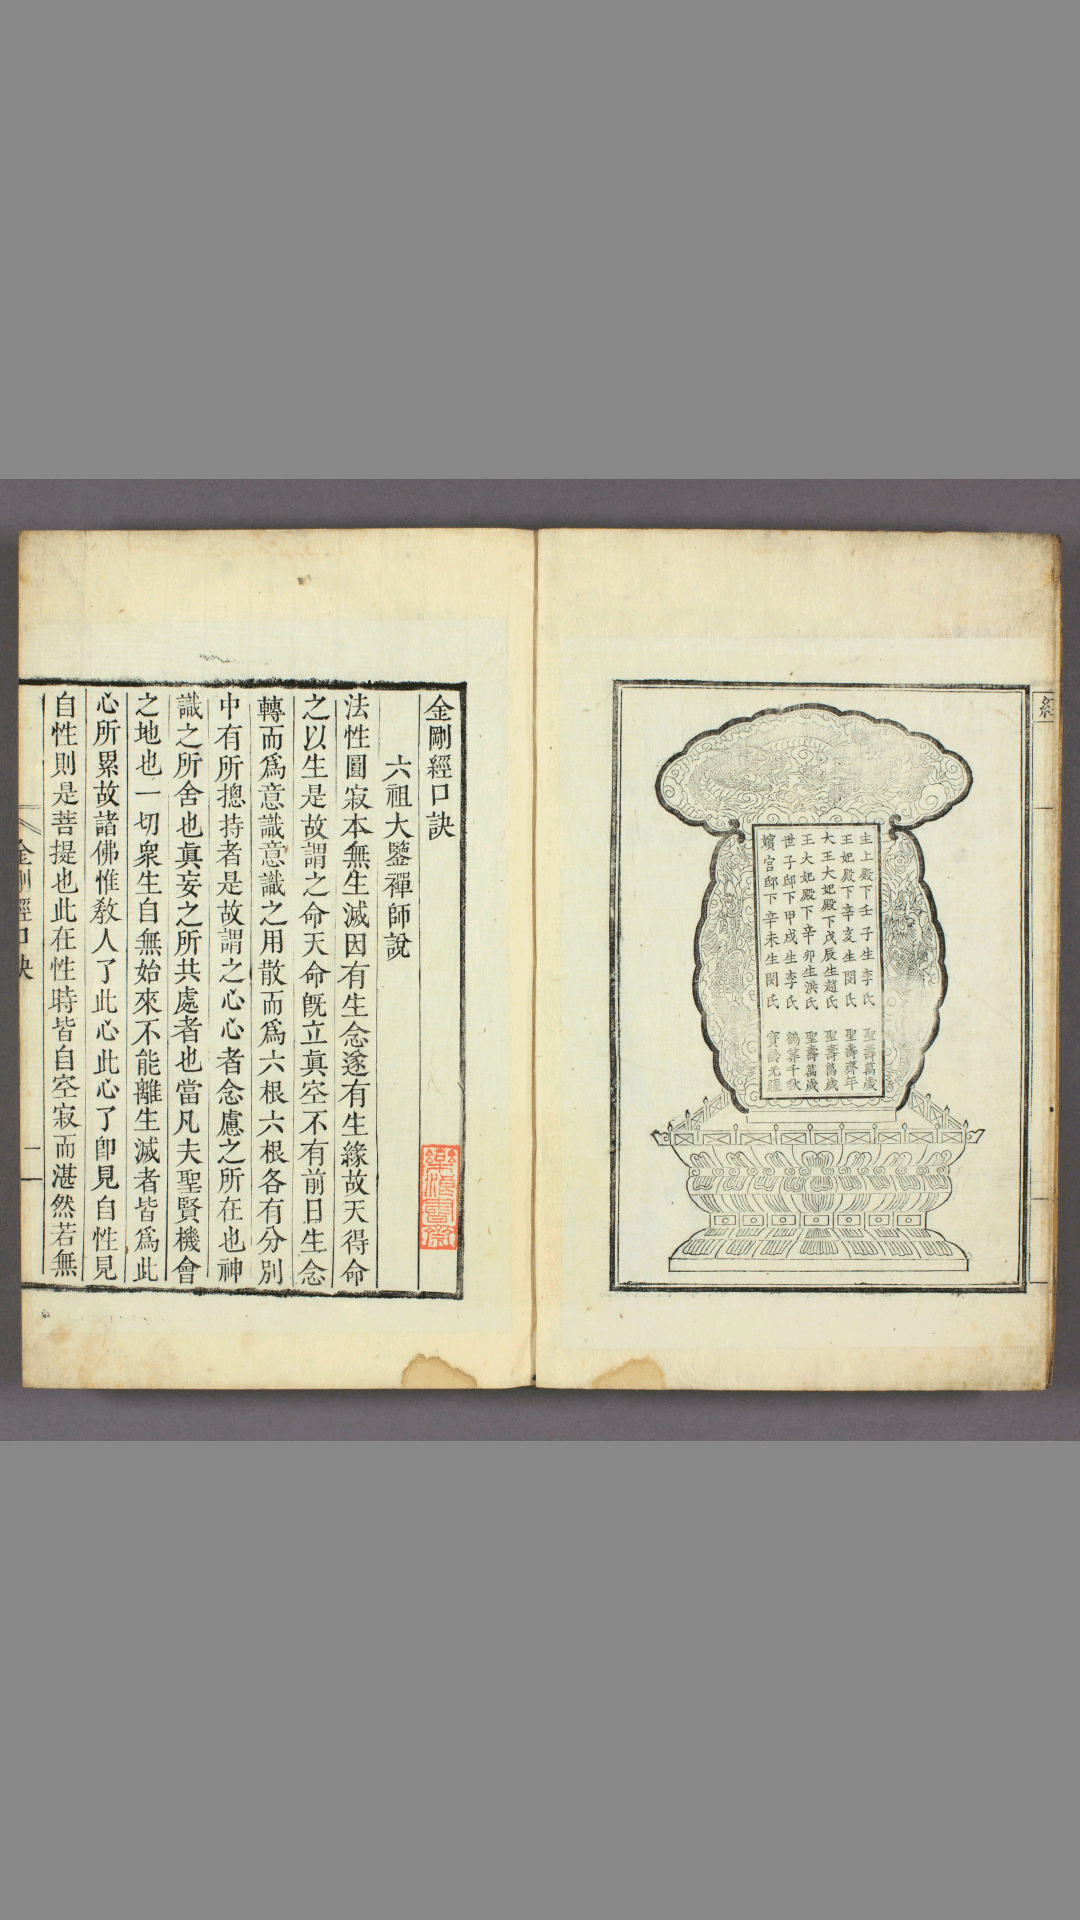 經
主上殿下壬子生李氏 聖壽萬歲
王妃殿下辛亥生閔氏 聖壽齊年
大王大妃殿下戊辰生趙氏 聖壽萬歲
王大妃殿下辛卯生洪氏 聖壽萬歲
世子邸下甲戌生李氏 鶴筭千秋
嬪宮邸下辛未生閔氏 寶齡无疆
金剛經口訣
六祖大鑒禪師說
法性圓寂本無生滅因有生念遂有生緣故天得命
之以生是故謂之命天命旣立眞空不有前日生念
轉而爲意識意識之用散而爲六根六根各有分別
中有所摠持者是故謂之心心者念慮之所在也神
識之所舍也眞妄之所共處者也當凡夫聖賢機會
之地也一切衆生自無始來不能離生滅者皆爲此
心所累故諸佛惟敎人了此心此心了卽見自性見
自性則是菩提也此在性時皆自空寂而湛然若無
金剛經口訣
一